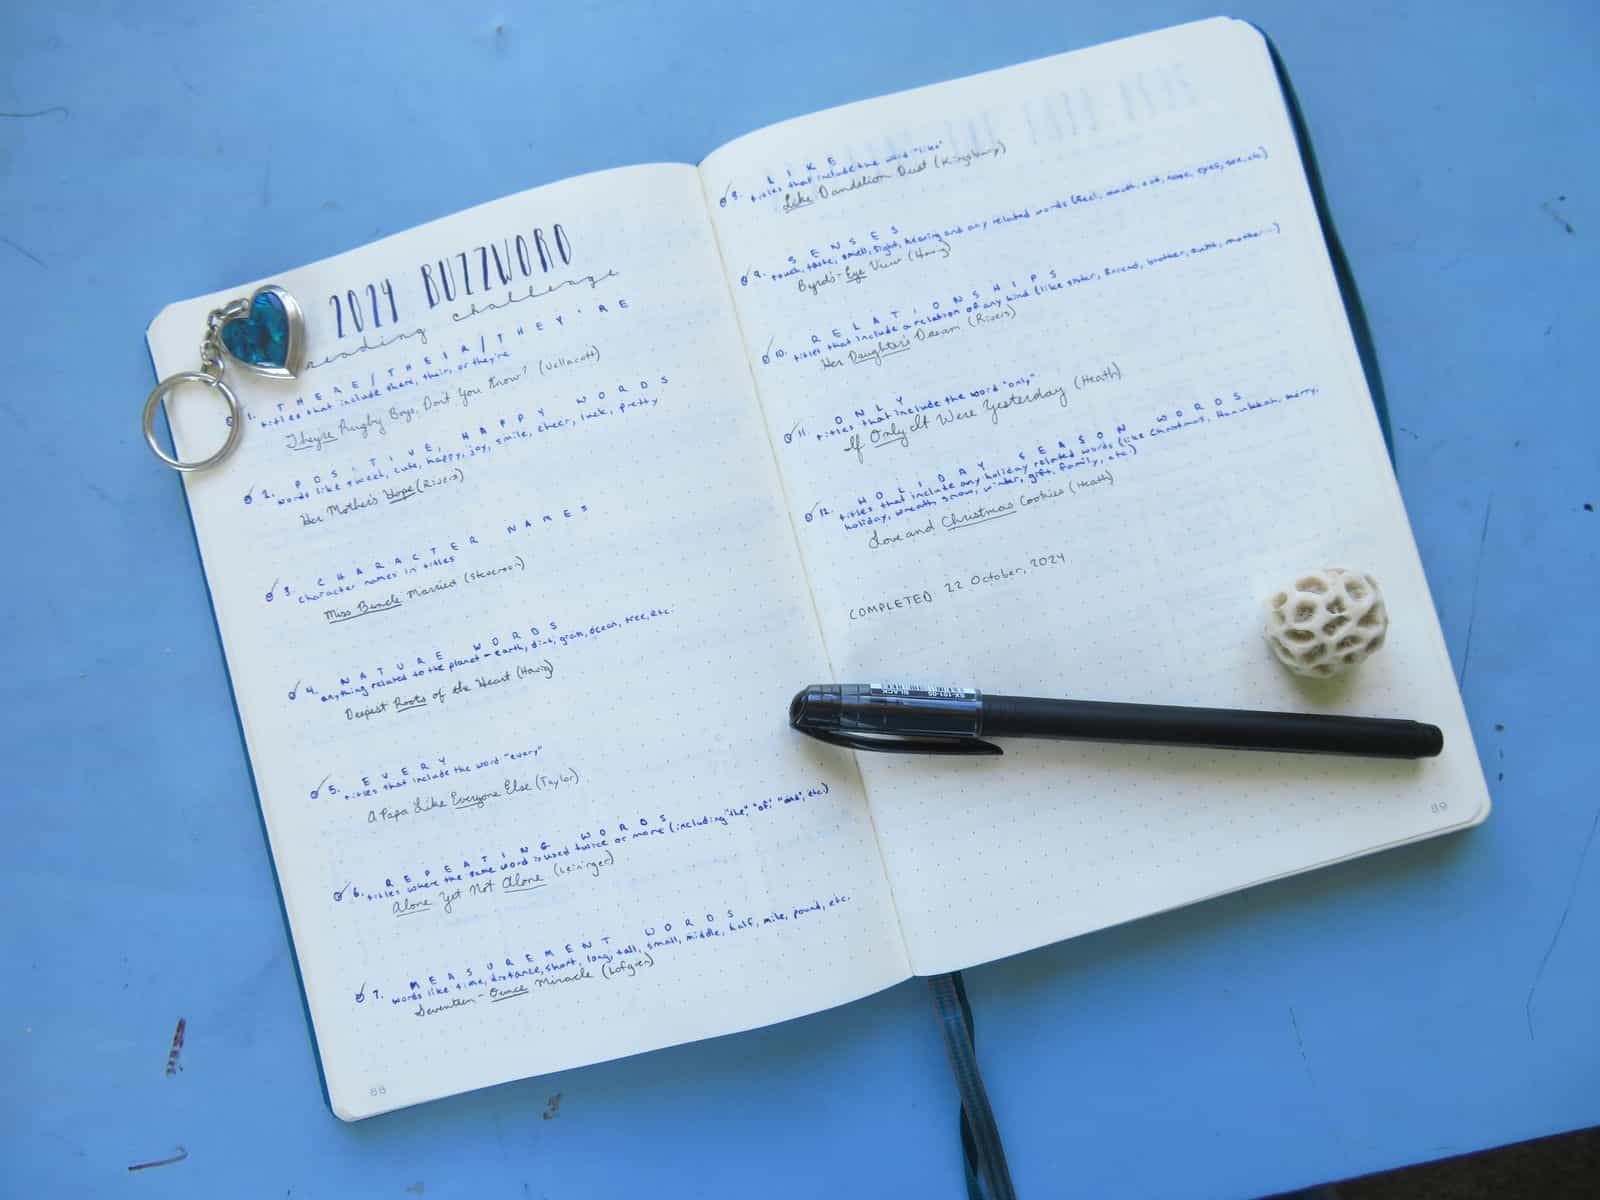 2024 BUZZWORD
reading challenge
1. THERE/THEIR/THEY'RE
titles that include there, their, or they're
They're Rugby Boys, Don't You Know? (Vellacott)
2. POSITIVE, HAPPY WORDS
words like sweet, cute, happy, joy, smile, cheer, luck, pretty
Her Mother's Hope (Rivers)
3. CHARACTER NAMES
character names in titles
Miss Buncle Married (Stevenson)
4. NATURE WORDS
anything related to the planet - earth, dirt, grass, ocean, tree, etc.
Deepest Roots of the Heart (Havig)
5. EVERY
titles that include the word "every"
A Papa Like Everyone Else (Taylor)
6. REPEATING WORDS
titles where the same word is used twice or more (including "the", "of", "and", etc.)
Alone Yet Not Alone (Leininger)
7. MEASUREMENT WORDS
words like time, distance, short, long, tall, small, middle, half, mile, pound, etc.
Seventeen-Ounce Miracle (Lofgren)
88
8. LIKE
titles that include the word "like"
Like Dandelion Dust (Kingsbury)
9. SENSES
touch, taste, smell, sight, hearing and any related words (feel, mouth, eat, nose, eyes, see, etc)
Byrd's-Eye View (Havig)
10. RELATIONSHIPS
titles that include a relation of any kind (like sister, friend, brother, aunt, mother...)
Her Daughter's Dream (Rivers)
11. ONLY
titles that include the word "only"
If Only It Were Yesterday (Heath)
12. HOLIDAY SEASON WORDS
titles that include any holiday related words (like Christmas, Hanukkah, merry,
holiday, wreath, snow, winter, gift, family, etc.)
Love and Christmas Cookies (Heath)
COMPLETED 22 October, 2024
BLACK
89